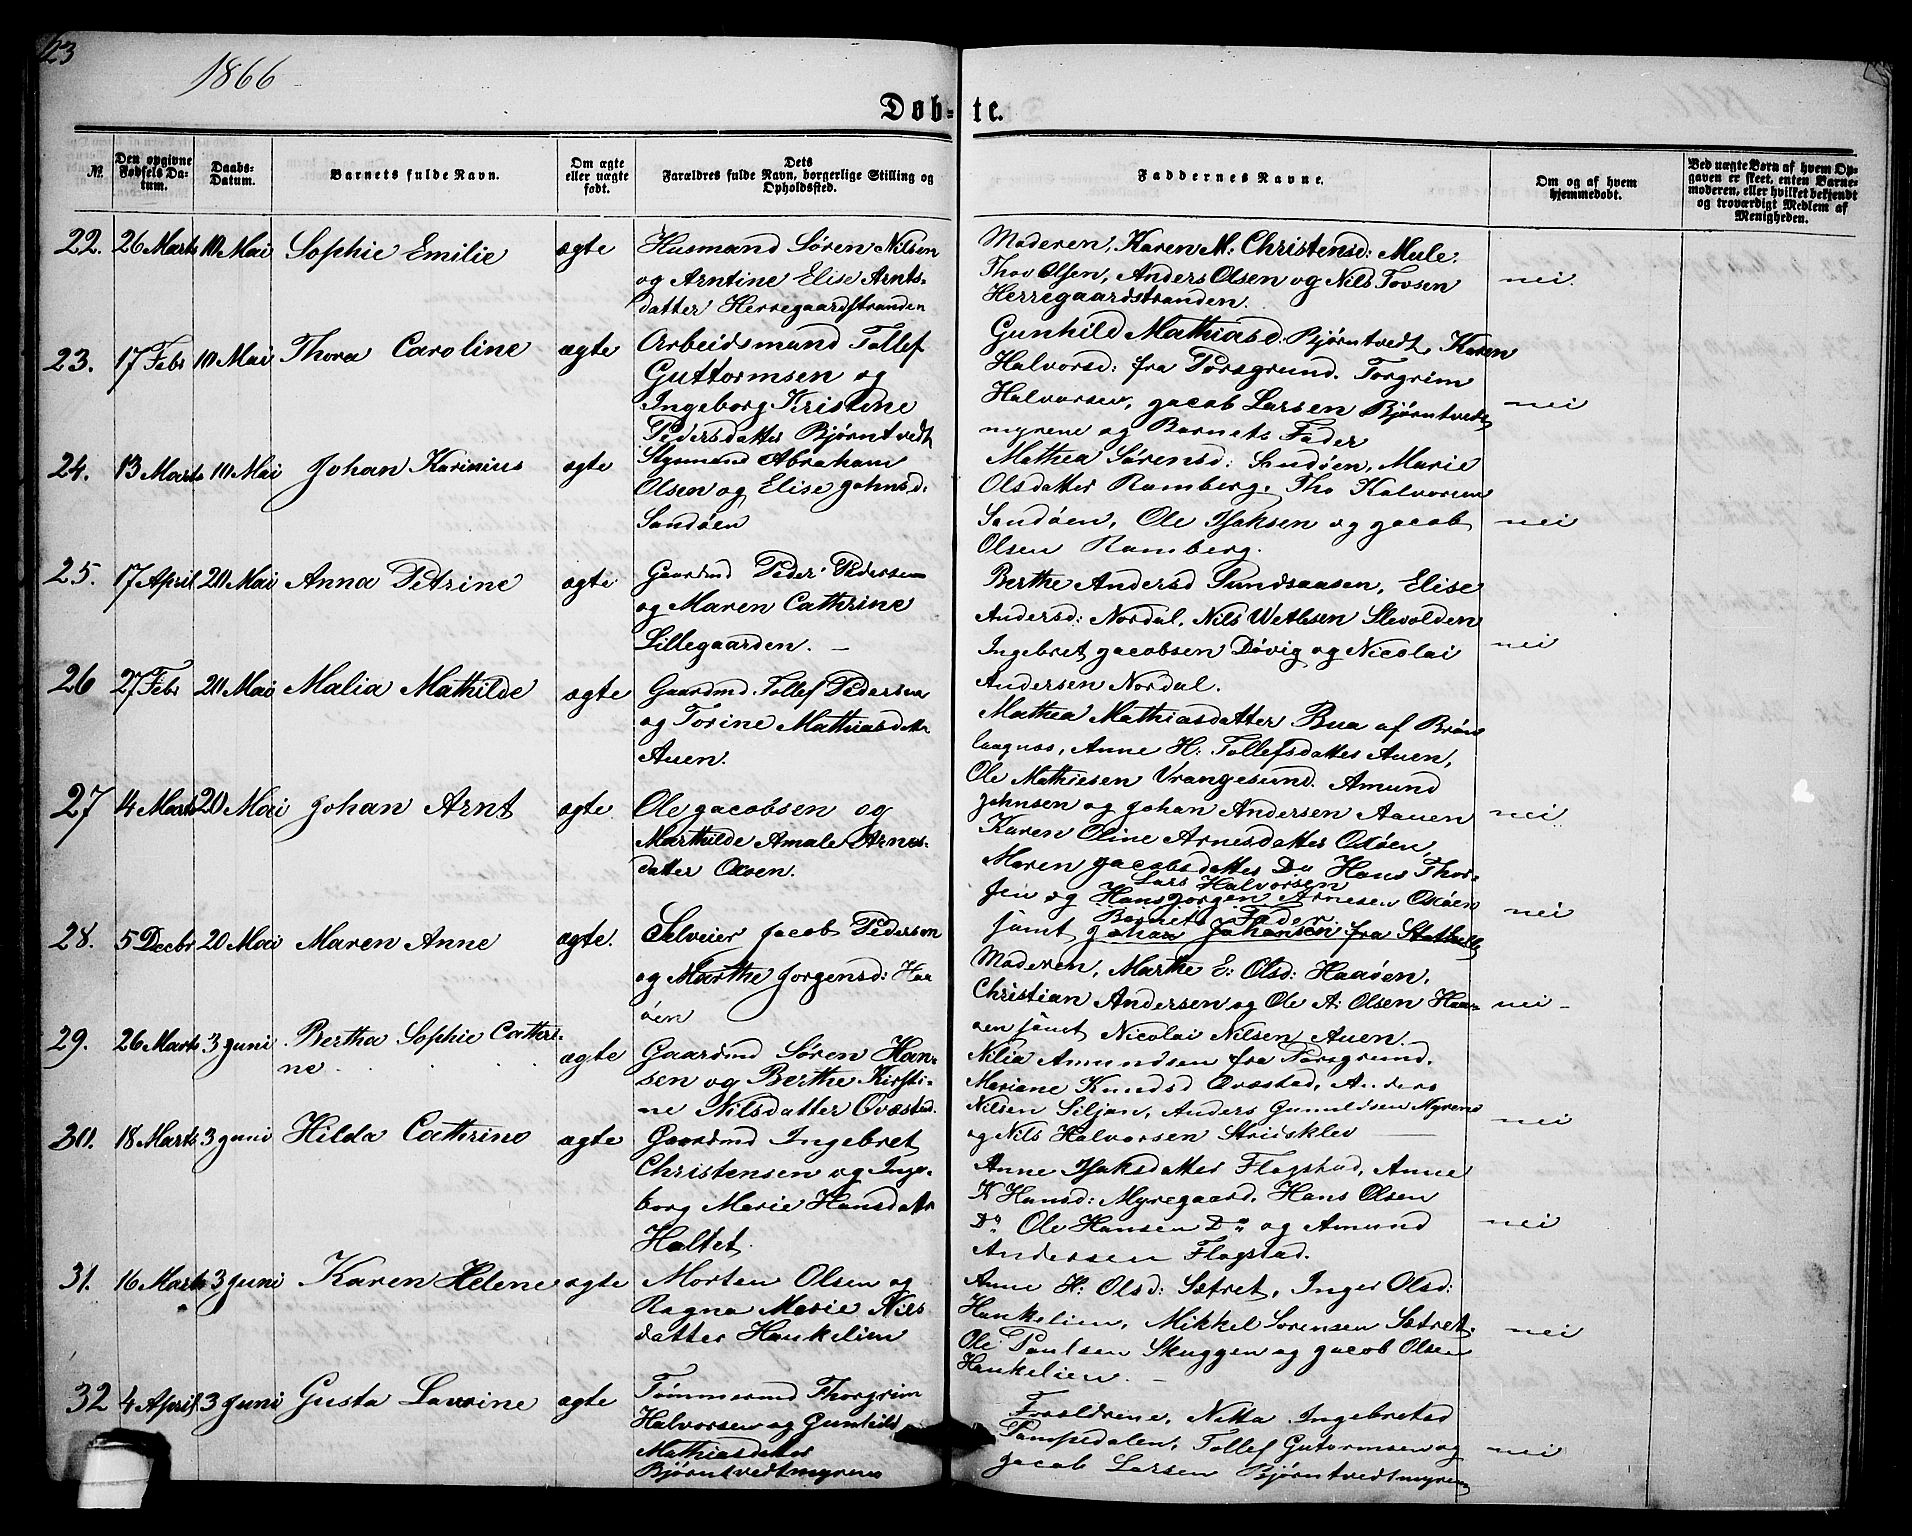 23
1866
Døb-te.
No.
Den opgivne Fødsels Datum.
Daabs-Datum.
Barnets fulde Navn.
Om ægte eller uægte født.
Dets Forældres fulde Navn, borgerlige Stilling og Opholdssted.
Faddernes Navne.
Om og af hvem hjemmedøbt.
Ved uægte Børn af hvem Opgaven er skeet, enten Barnemoderen, eller hvilket bekjendt og troværdigt Medlem af Menigheden.
22. 26 Marts 10 Mai Sophie Emilie ægte
Husmand Søren Nilsen
og Arntine Elise Arnts-
datter Herregaardstranden
Moderen, Karen M: Christensd: Mule.
Thov Olsen, Anders Olsen og Nils Tovsen
Herregaardstranden.
nei.
23. 17 Febr 10 Mai Thora Caroline ægte
Arbeidsmand Tollef
Guttormsen og
Ingeborg Kristine
Pedersdatter Bjørntvedt
Gunhild Mathiasd. Bjørntvedt, Karen
Halvorsd: fra Porsgrund. Torgrim
Halvorsen, Jacob Larsen Bjørntvedt
myrene og Barnets Fader
nei
24. 13 Marts 10 Mai Johan Karinius ægte
Abraham
Olsen og Elise Johnsd.
Sandøen
Mathea Sørensd: Sandøen, Marie
Olsdatter Ramberg. Tho Halvorsen
Sandøen, Ole Isaksen og Jacob
Olsen Ramberg.
nei
25. 17 April 20 Mai Anna Petrine ægte
Gaardmd Peder Pedersen
og Maren Cathrine
Lillegaarden. —
Berthe Andersd Sundsaasen, Elise
Andersd: Nordal, Nils Wetlesen Slevolden
Ingebret Jacobsen Døvig og Nicolai
Andersen Nordal.
nei
26 27 Febr 20 Mai Malia Mathilde ægte
Gaardmd. Tollef Pedersen
og Torine Mathiasdatter
Auen.
Mathea Mathiasdatter Bua af
Anne H: Tollefsdatter Auen,
Ole Mathiesen Vrangesund. Amund
Johnsen og Johan Andersen Aauen
nei
27 4 Marts 20 Mai Johan Arnt ægte
Ole Jacobsen og
Marthilde Amale Arnes-
datter Oxøen.
Karen Oline Arnesdatter Oxøen,
Maren Jacobsdatter Do Hans Thor-
Lars Halvorsen
sen og Hans Jørgen Arnesen Oxøen
Barnets Fader
samt Johan Johansen fra Stathelle
nei
28. 5 Decbr 20 Mai Maren Anne ægte.
Selveier Jacob Pedersen
og Marthe Jørgensd: Haa-
øen
Moderen, Marthe E: Olsd: Haaøen,
Christian Andersen og Ole A: Olsen Haa-
øen samt Nicolai Nilsen Auen.
nei -
29. 26 Marts 3 Juni Bertha Sophie Cathri-
ne ægte
Gaardmd Søren Han-
sen og Berthe Kirsti-
ne Nilsdatter Ovæstad.
Nilia Amundsen fra Porsgrund.
Mariane Knudsd Ovæstad, Anders
Nilsen Siljan, Anders Gunuldsen Myrene
og Nils Halvorsen Stridsklev —
nei
30. 18 Marts 3 Juni Hilda Cathrine ægte
Gaardmd Ingebret
Christensen og Inge-
borg Marie Hansdatr
Haltet.
Anne Isaksdatter Flogstad, Anne
K Hansd: Myregaard. Hans Olsen
Do. Ole Hansen Do og Amund
Andersen Flogstad.
nei
31. 16 Marts 3 Juni Karen Helene ægte
Morten Olsen og
Ragna Marie Nils
datter Hankelien
Anne H: Olsd: Sætret, Inger Olsd:
Hankelien, Mikkel Sørensen Sætret.
Ole Paulsen Skuggen og Jacob Olsen
Hankelien. —
nei
32 4 April 3 Juni Gusta Lavrine ægte
Tømmermd Thorgrim
Halvorsen og Gunhild
Mathiasdatter
Bjørntvedtmyrene
Forældrene, Nitta Ingebretsd
Pampedalen, Tollef Gutormsen og
Jacob Larsen Bjørntvedtmyren
nei